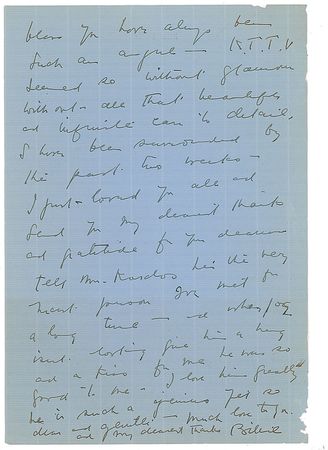 bless you have always been
such an angel — K.T.T.V
seemed so without glamour
without all that beautiful
and infinite care to detail.
I have been surrounded by
the past two weeks —
I just loved you all and
send you my dearest thanks
and gratitude for you
tell Mr. he's the very
nicest person I've met for
a long time — and when
isn't looking give him a hug
and a kiss for me he was so
good "to me" I love him
he is such a genius yet so
dear and gentle — much love to you
and my dearest thanks